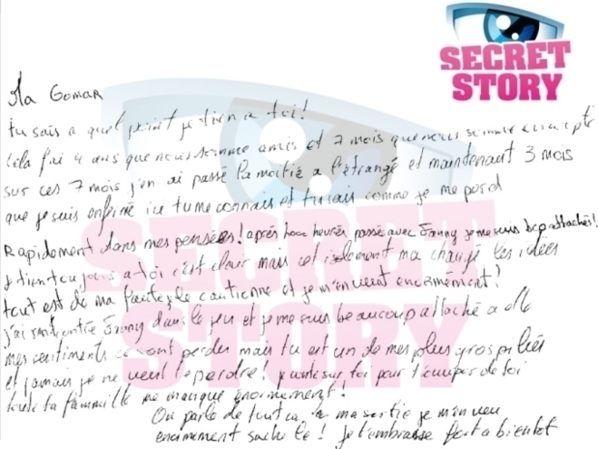 SECRET
STORY
Ma Gomar
tu sais a quel point je tien a toi !
Cela fai 4 ans que nous somme amis et 7 mois que nous somme en couple
sur ces 7 mois j'en ai passé la moitié a l'étrangé et maintenant 3 mois
que je suis enfermé ici tu me connais et tu sais comme je me perd
Rapidement dans mes pensées ! après heures passé avec Fanny je me suis bcp attaché !
je tien toujours a toi c'est clair mais cet isolement ma changé les idées
tout est de ma faute je le cautionne et je m'en veut enormément !
j'ai rencontré Fanny dans le jeu et je me suis beaucoup attaché a elle
mes sentiments se sont perdus mais tu est un de mes plus gros pilié
et jamais je ne veut te perdre ! je conte sur toi pour t'ocuper de toi
toute ta fammille me manque enormement !
On parle de tout ca a ma sortie je m'en veu
enormement sache le ! je t'embrasse fort a bientot
SECRET
STORY